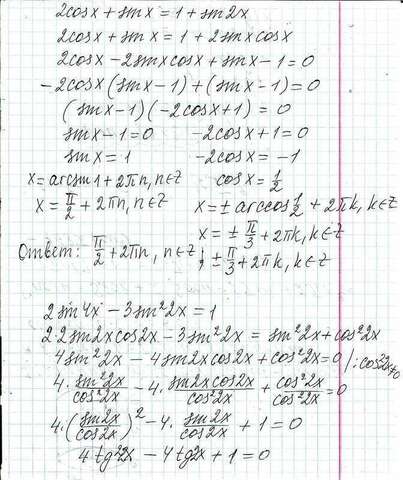 2cosx + sinx = 1 + sin2x
2cosx + sinx = 1 + 2sinxcosx
2cosx - 2sinxcosx + sinx - 1 = 0
-2cosx(sinx-1) + (sinx-1) = 0
(sinx-1)(-2cosx+1) = 0
sinx-1=0 -2cosx+1=0
sinx=1 -2cosx=-1
x=arcsin1+2πn, n∈Z cosx=1/2
x=π/2+2πn, n∈Z x=±arccos1/2+2πk, k∈Z
x=±π/3+2πk, k∈Z
Ответ: π/2+2πn, n∈Z; ±π/3+2πk, k∈Z
2sin4x - 3sin²2x = 1
2·2sin2xcos2x - 3sin²2x = sin²2x + cos²2x
4sin²2x - 4sin2xcos2x + cos²2x = 0 /: cos²2x≠0
4·sin²2x/cos²2x - 4·sin2xcos2x/cos²2x + cos²2x/cos²2x = 0
4·(sin2x/cos2x)² - 4·sin2x/cos2x + 1 = 0
4tg²2x - 4tg2x + 1 = 0